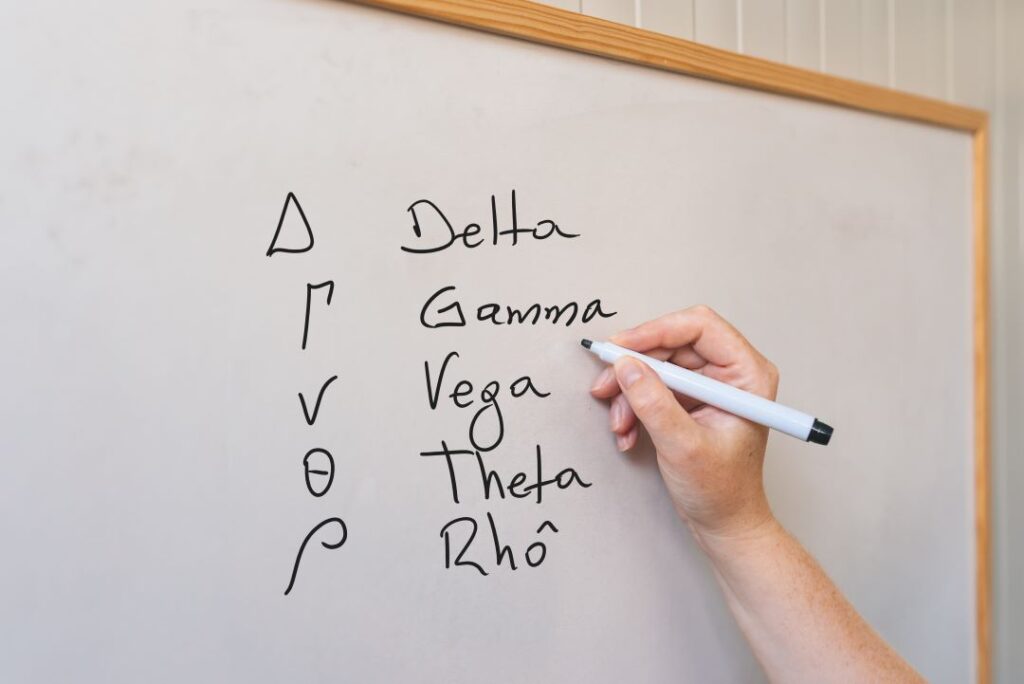 Δ Delta
Γ Gamma
ν Vega
θ Theta
ρ Rhô